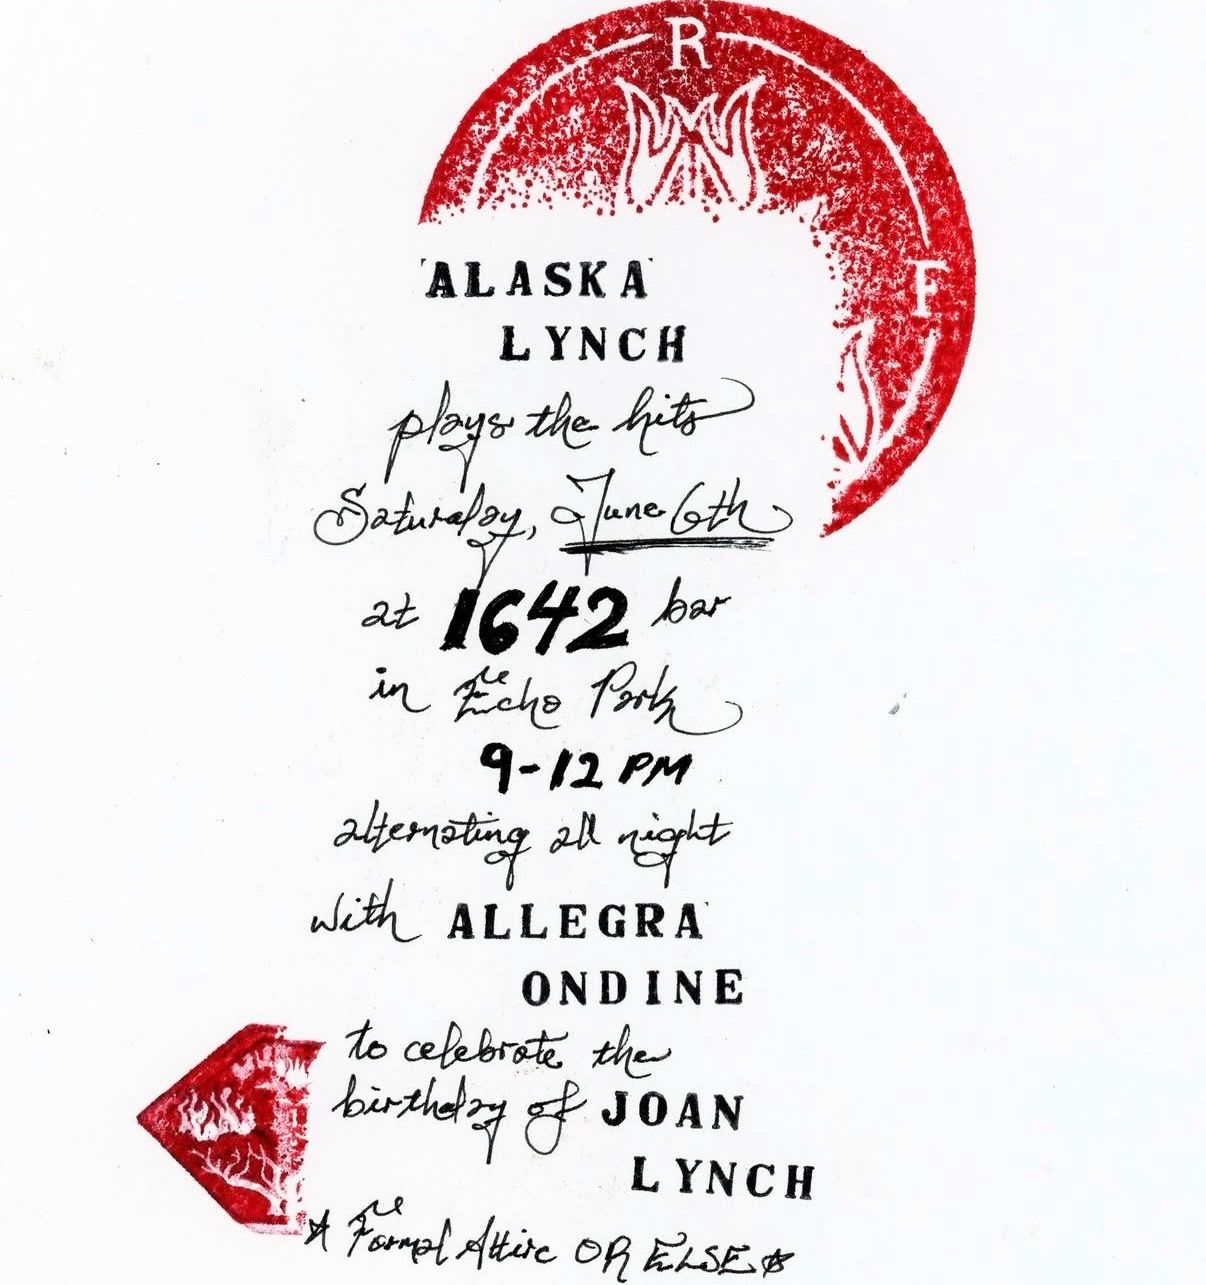 R
F
'ALASKA'
LYNCH
plays the hits
Saturday, June 6th
at 1642 bar
in Echo Park
9-12 PM
alternating all night
with ALLEGRA
ONDINE
to celebrate the
birthday of JOAN
LYNCH
☆ Formal Attire OR ELSE ☆